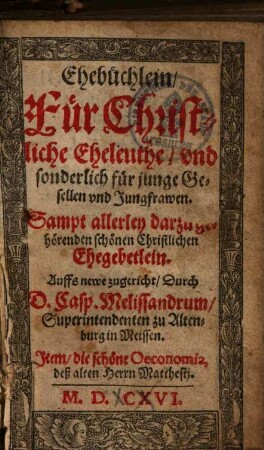 Ehebüchlein/
Für Christ-
liche Eheleuthe/ vnd
sonderlich für junge Ge-
sellen vnd Jungfrawen.
Sampt allerley darzu ge-
hörenden schönen Christlichen
Ehegebetlein.
Auffs newe zugericht/ Durch
D. Casp. Melissandrum/
Superintendenten zu Alten-
burg in Meissen.
Item/ die schöne Oeconomia,
deß alten Herrn Matthesij.
M. D. CXVI.